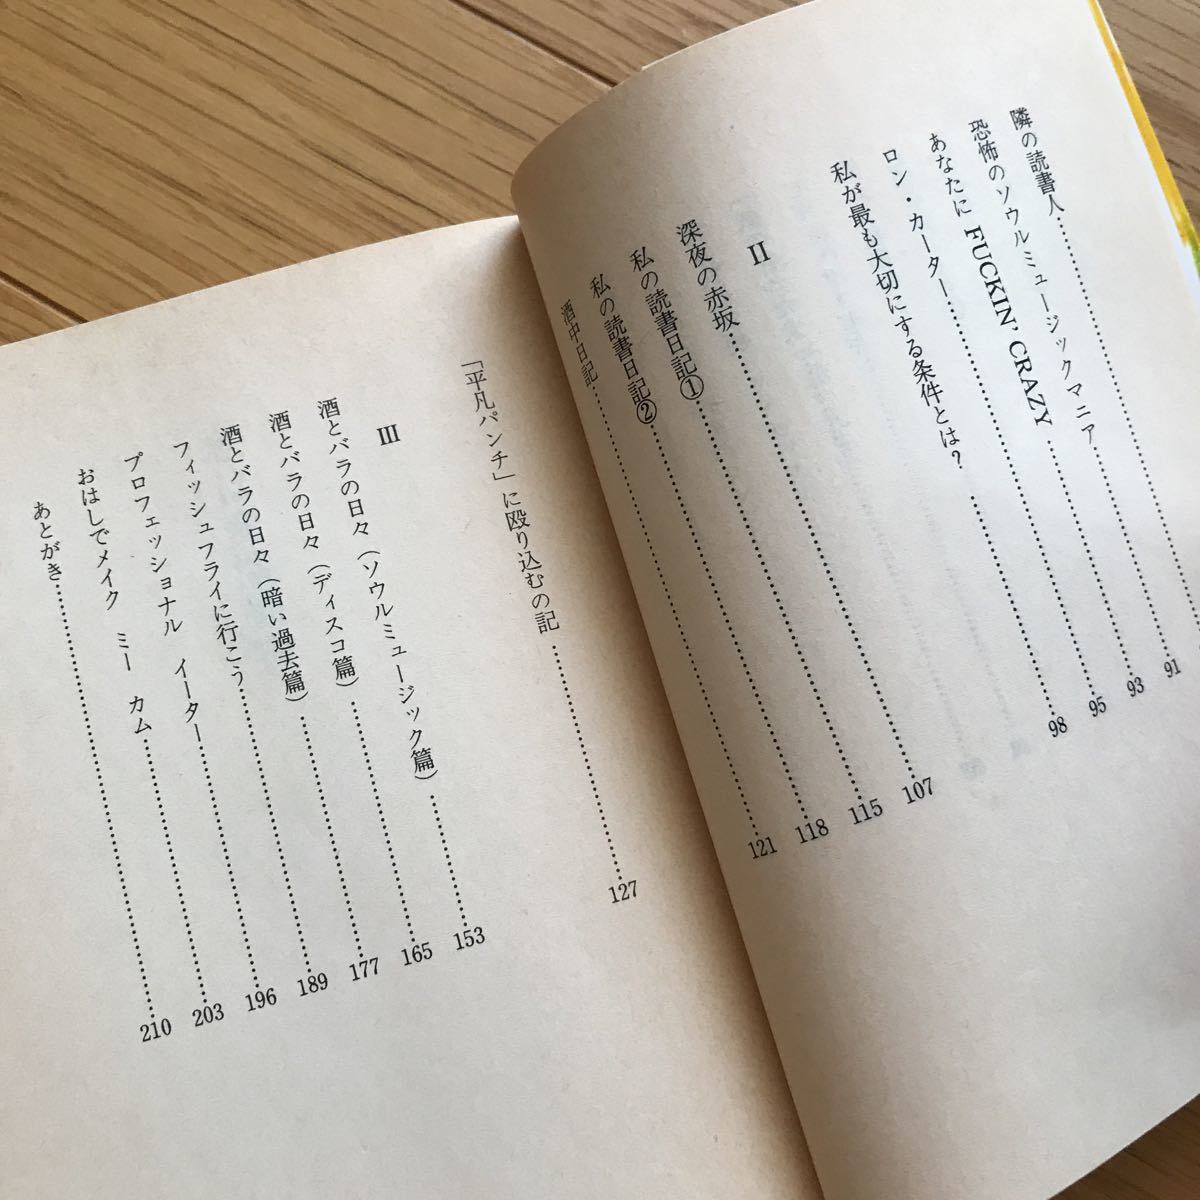 隣の読書人……………
恐怖のソウルミュージックマニア……………91
あなたに FUCKIN' CRAZY……………93
ロン・カーター……………95
私が最も大切にする条件とは？……………98
II
深夜の赤坂……………107
私の読書日記①……………115
私の読書日記②……………118
酒中日記……………121
「平凡パンチ」に殴り込むの記……………127
III
酒とバラの日々（ソウルミュージック篇）……………153
酒とバラの日々（ディスコ篇）……………165
酒とバラの日々（暗い過去篇）……………177
フィッシュフライに行こう……………189
プロフェッショナル イーター……………196
おはしでメイク ミー カム……………203
あとがき……………210